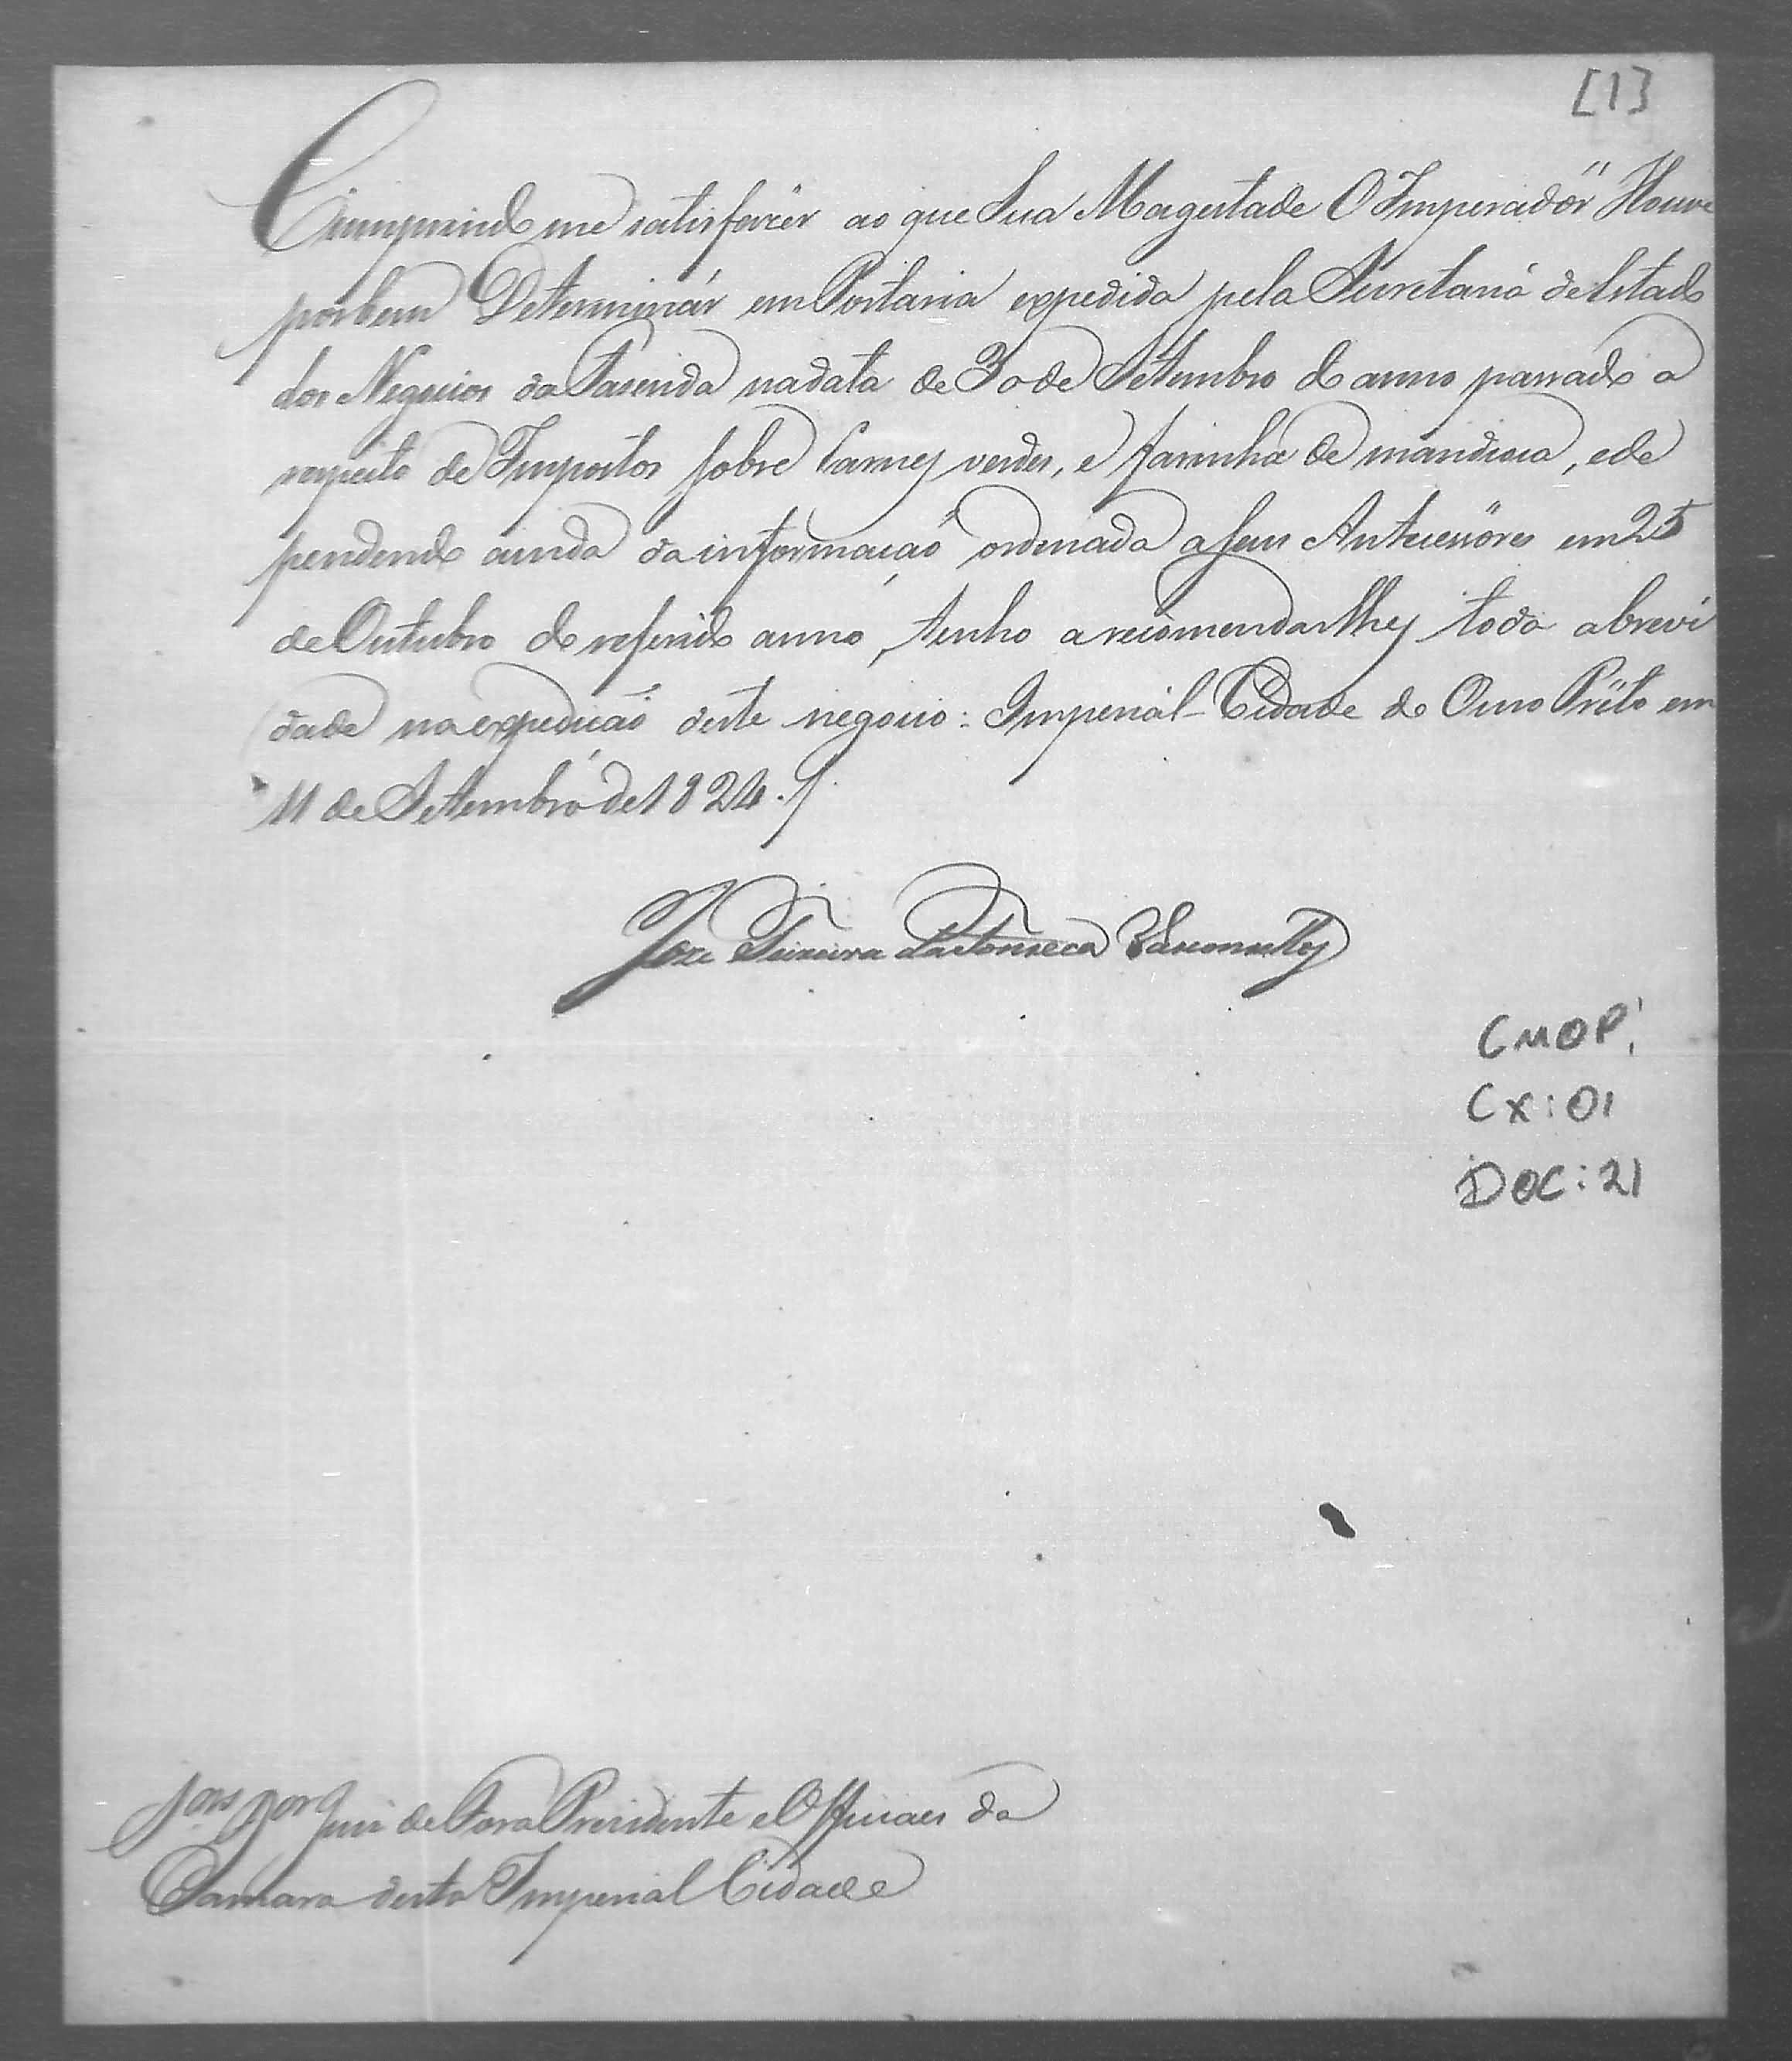 [1]
Cumprindo me satisfazer ao que Sua Magestade O Imperador Houve
por bem Determinár em Portaria expedida pela Secretaria de Estado
dos Negocios da Fasenda na data de 30 de Setembro do anno passado a
respeito de Impostos sobre Carnes verdes, e farinha de mandioca, e de
pendendo ainda da informaçaõ ordenada a seus Antecessores em 25
de Outubro do referido anno, tenho a recomendarlhes toda a brevi
dade na expediçaõ deste negocio: Imperial Cidade do Ouro Prêto em
11 de Setembro de 1824./
Joze Teixeira da Fonseca Vasconcellos
CMOP.
CX: 01
DOC: 21
Juiz de Fora Presidente e Officiaes da
Camara desta Imperial Cidade